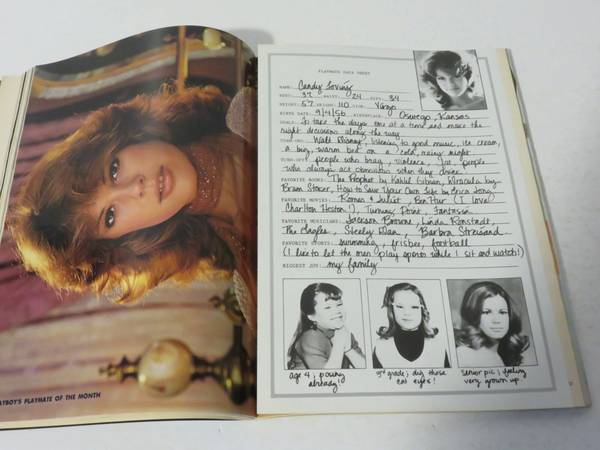 PLAYBOY'S PLAYMATE OF THE MONTH
PLAYMATE DATA SHEET
NAME: Candy Loving
BUST: 37 WAIST: 24 HIPS: 34
HEIGHT: 5'7 WEIGHT: 110 SIGN: Virgo
BIRTH DATE: 9/4/56 BIRTHPLACE: Oswego, Kansas
GOALS: To take the days one at a time and make the
right decisions along the way
TURN-ONS: Walt Disney, listening to good music, ice cream,
a big, warm bed on a cold, rainy night
TURN-OFFS: people who brag, violence, people
who always act obnoxious when they drink
FAVORITE BOOKS: The Prophet by Kahlil Gibran, Dracula by
Bram Stoker, How to Save Your Own Life by Erica Jong
FAVORITE MOVIES: Romeo & Juliet, Ben Hur (I love
Charlton Heston!), Turning Point, Fantasia
FAVORITE MUSICIANS: Jackson Browne, Linda Ronstadt,
The Eagles, Steely Dan, Barbra Streisand
FAVORITE SPORTS: swimming, frisbee, football
(I like to let the men play sports while I sit and watch!)
BIGGEST JOY: my family
age 4; posing
already!
3rd grade; dig those
cat eyes!
senior pic; feeling
very grown up